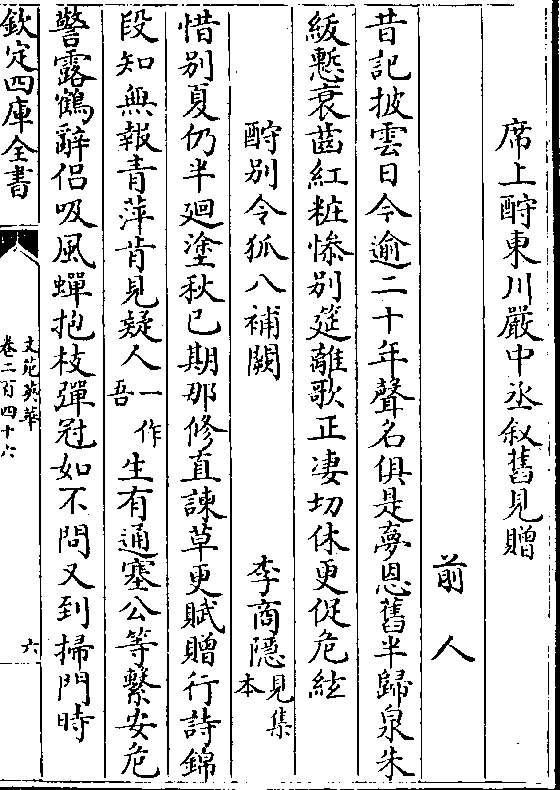 席上酧東川嚴中丞叙舊見贈
前人
昔記披雲日今逾二十年聲名俱是夢恩舊半歸泉朱
紱慙衰齒紅粧慘別筵離歌正凄切休更促危絃
酧別令狐八補闕
李商隱見集本
惜別夏仍半廻塗秋已期那修直諫草更賦贈行詩錦
段知無報青萍肯見疑人一作吾生有通塞公等繫安危
警露鶴辭侶吸風蟬抱枝彈冠如不問又到掃門時
欽定四庫全書
文苑英華
卷二百四十六
六